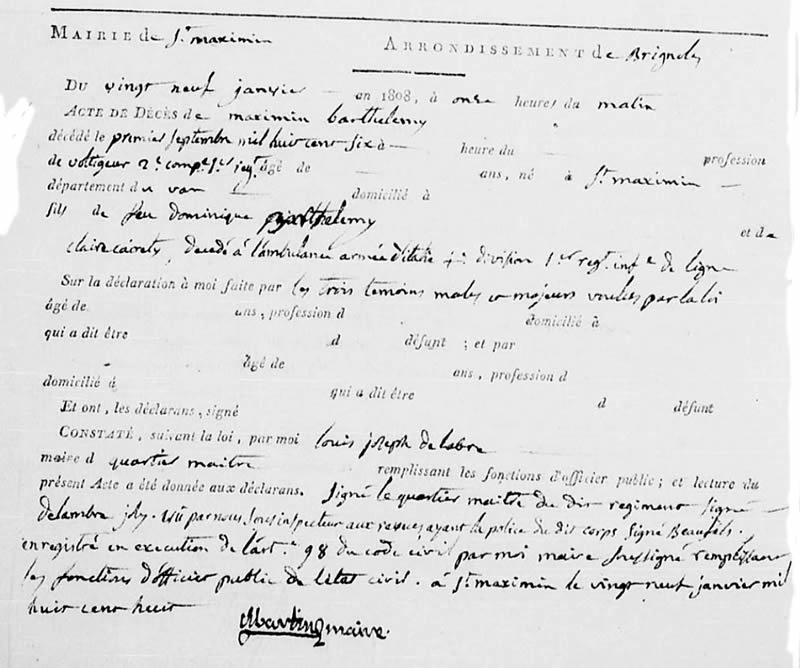 MAIRIE de St. maximin ARRONDISSEMENT de Brignoles
DU vingt neuf janvier — an 1808, à onze heures du matin
ACTE DE DÉCÈS de maximin barthelemy
décédé le premier septembre mil huit cent six à — heure du — profession
de voltigeur 2e. compe. 1er. regt. âgé de — ans, né à St. maximin —
département du var — domicilié à
fils de feu dominique barthelemy et de
claire decedé à l'ambulance armée d'italie division 1er regt. infe. de ligne
Sur la déclaration à moi faite par les trois temoins males et majeurs voulus par la loi
âgé de ans, profession d domicilié à
qui a dit être d défunt ; et par
âgé de ans, profession d
domicilié à qui a dit être d défunt
Et ont, les déclarans, signé
CONSTATÉ, suivant la loi, par moi louis joseph delabre
maire d quartier maitre remplissant les fonctions d'officier public ; et lecture du
présent Acte a été donnée aux déclarans. Signé le quartier maitre du dit regiment signé —
delambre par nous sous inspecteur aux revues, ayant la police du dit corps signé
enregistré en execution de l'art.e 98 du code civil par moi maire soussigné remplissant
les fonctions d'officier public de l'etat civil. à St. maximin le vingt neuf janvier mil
huit cent huit
Martin maire.